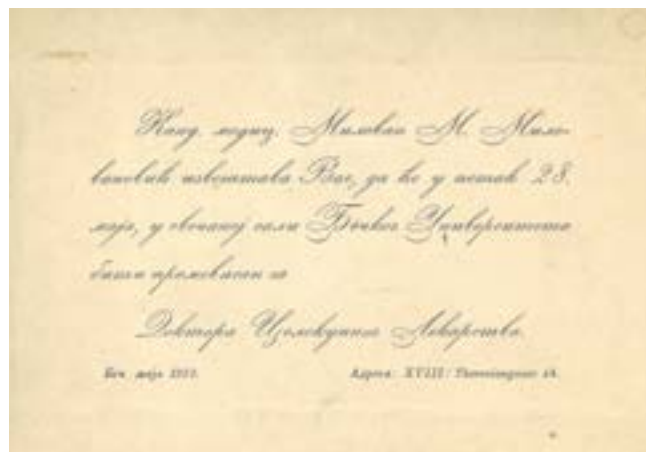 Канд. медиц. Милован М. Мило-
вановић извештава Вас, да ће у петак 28.
маја, у свечаној сали Бечког Универзитета
бити промовисан за
Доктора Целокупног Лекарства.
Беч маја
Адреса: XVIII/